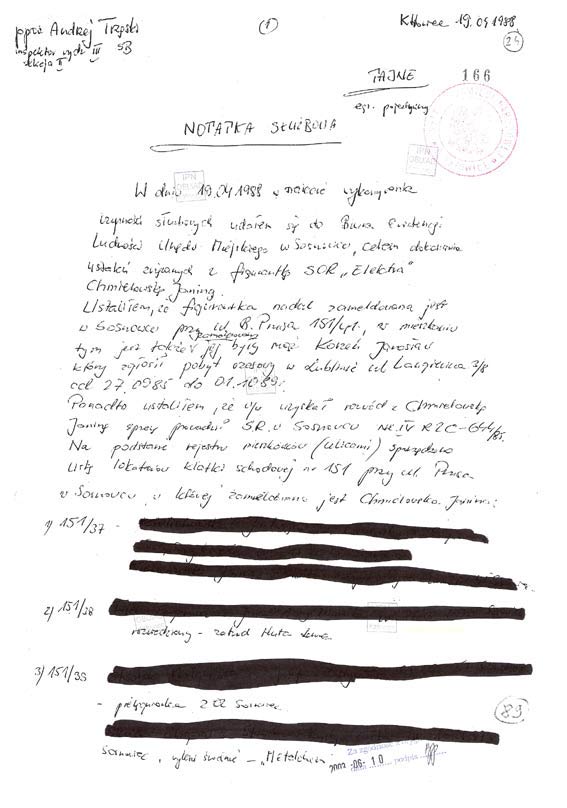 ppor. Andrzej
inspektor wydz III SB
sekcja II
①
K-towice 19.04.1988
24
TAJNE
166
egz. pojedynczy
NOTATKA SŁUŻBOWA
W dniu 19.04.1988 w trakcie wykonywania
czynności służbowych udałem się do Biura Ewidencji
Ludności Urzędu Miejskiego w Sosnowcu, celem dokonania
ustaleń związanych z figurantką SOR "Elektra"
Chmielowską Janiną.
Ustaliłem, że figurantka nadal zameldowana jest
w Sosnowcu przy ul. B. Prusa 151/41, w mieszkaniu
tym jest także zameldowany jej były mąż Korzeń Jarosław
który zgłosił pobyt czasowy w Lublinie ul 3/8
od 27.0985 do 01.1089r.
Ponadto ustaliłem, że w/w uzyskał rozwód z Chmielowską
Janiną sprawę prowadził SR w Sosnowcu Nr IV RZC-644/85.
Na podstawie rejestru mieszkańców (ulicami) sporządzono
listę lokatorów klatki schodowej nr 151 przy ul. Prusa
w Sosnowcu w której zameldowana jest Chmielowska Janina:
1) 151/37 -
2) 151/38
rozwiedziony - zatrud Huta
3) 151/39
- pielęgniarka ZOZ Sosnowiec
89
Sosnowiec, wykszt średnie - "Metalchem"
Za zgodność
2002 -06- 10
podpis